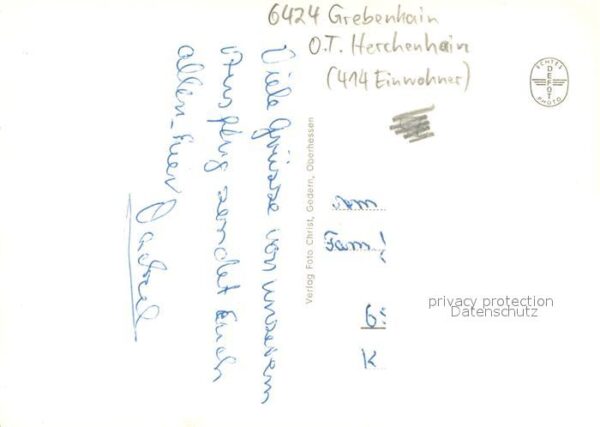 6424 Grebenhain
O.T. Herchenhain
(414 Einwohner)
ECHTES
DEFOT
PHOTO
Viele Grüsse von unserem
Ausflug sendet Euch
allen - Euer
Verlag Foto Christ, Gedern, Oberhessen
Fam!
6:
K
privacy protection
Datenschutz